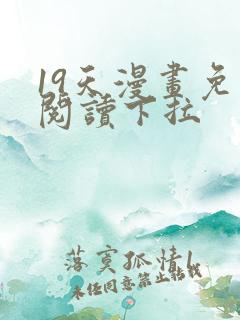 19天漫畫免
閱讀下拉
落寞孤情l
未经同意禁止转载